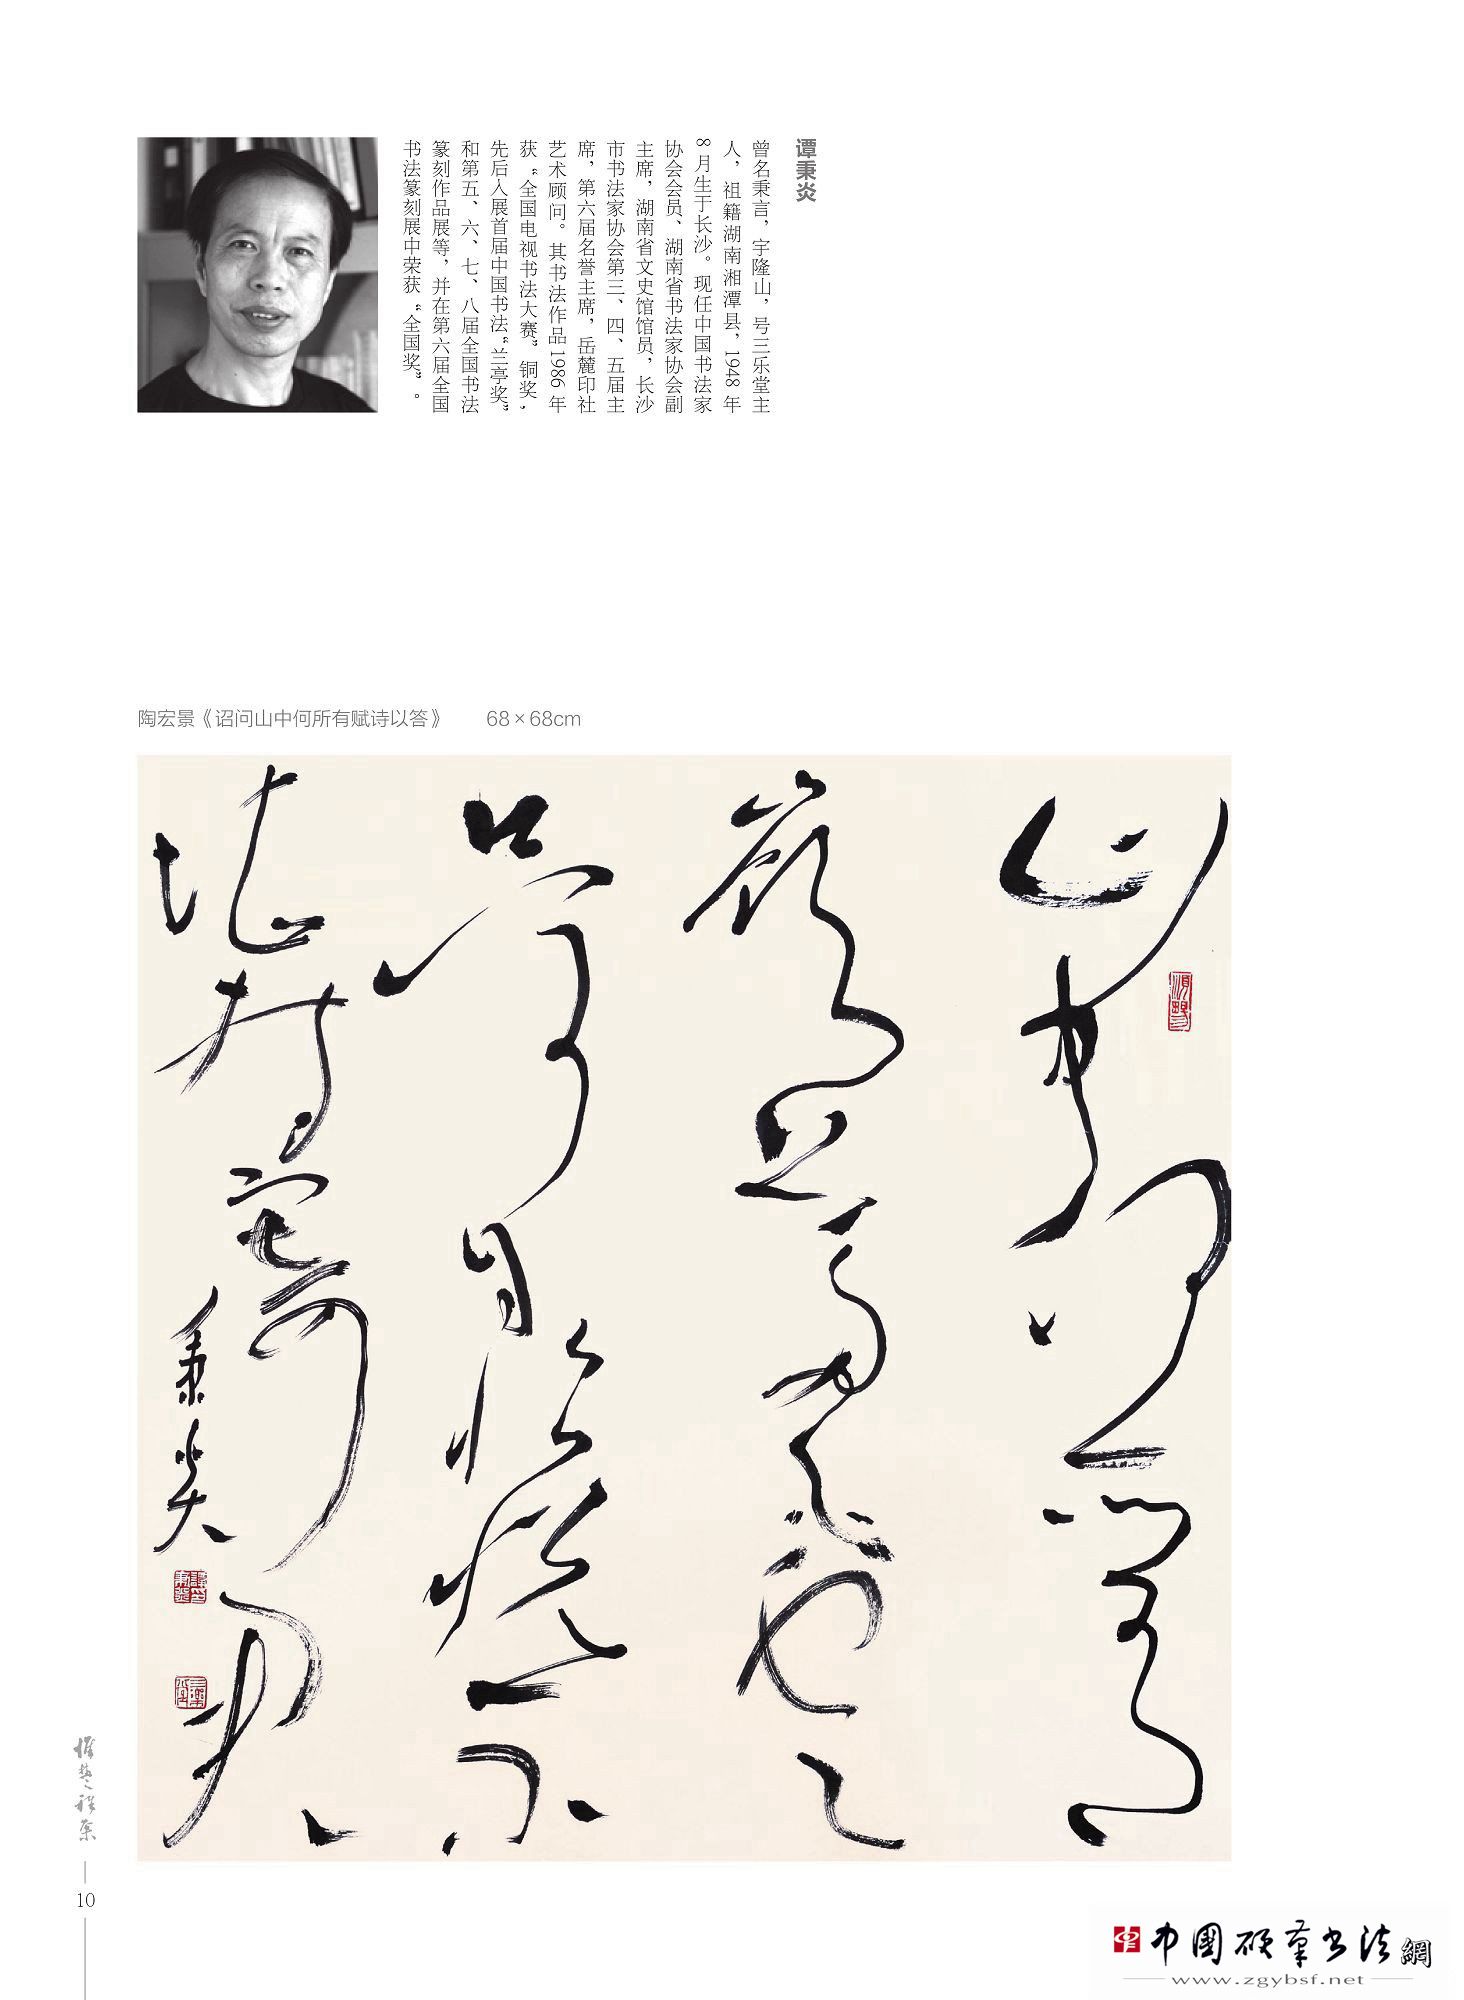 谭秉炎
曾名秉言，宇隆山，号三乐堂主
人，祖籍湖南湘潭县，1948 年
8 月生于长沙。现任中国书法家
协会会员、湖南省书法家协会副
主席，湖南省文史馆馆员，长沙
市书法家协会第三、四、五届主
席，第六届名誉主席，岳麓印社
艺术顾问。其书法作品1986 年
获“全国电视书法大赛”铜奖，
先后入展首届中国书法“兰亭奖”
和第五、六、七、八届全国书法
篆刻作品展等，并在第六届全国
书法篆刻展中荣获“全国奖”。
陶宏景《诏问山中何所有赋诗以答》 68×68cm
山中何所有
嶺上多白雲
只可自怡悦不
堪持寄君
秉炎
10
中国硬筆书法網
www.zgybsf.net